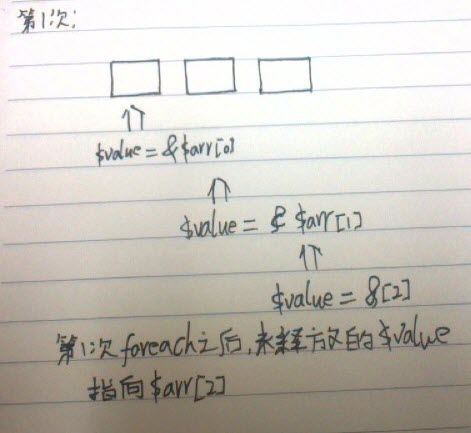 第1次:
$value = &$arr[0]
$value = & $arr[1]
$value = &[2]
第1次foreach之后,未释放的$value
指向$arr[2]